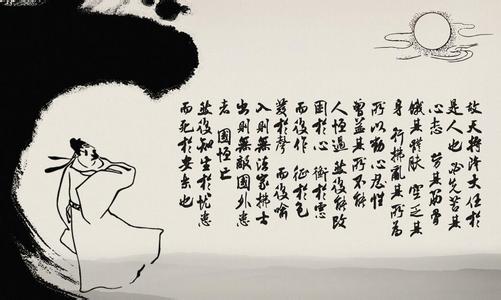 故天将降大任於
是人也 必先苦其
心志 勞其筋骨
餓其體膚 空乏其
身 行拂亂其所為
所以動心忍性
曾益其所不能
人恒過 然後能改
困於心 衡於慮
而後作 征於色
發於聲 而後喻
入則無法家拂士
出則無敵國外患
者 國恒亡
然後知生於憂患
而死於安樂也